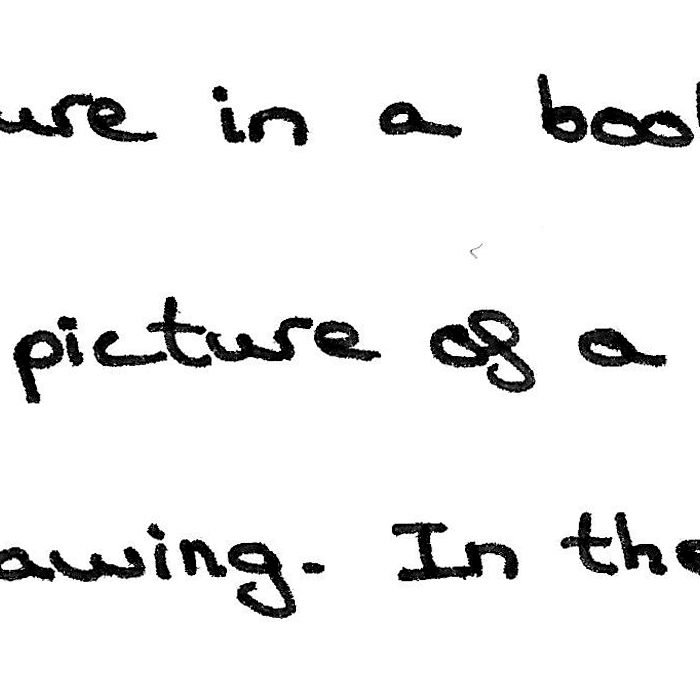 ure in a boo
picture of a
awing. In the